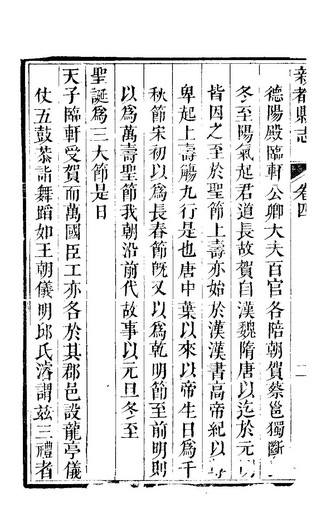 新都縣志 卷四 二
德陽殿臨軒公卿大夫百官各陪朝賀蔡邕獨斷
冬至陽氣起君道長故賀自漢魏隋唐以迄於元
皆因之至於聖節上壽亦始於漢漢書高帝紀以
卑起上壽觴九行是也唐中葉以來以帝生日爲千
秋節宋初以爲長春節旣又以爲乾明節至前明則
以爲萬壽聖節我朝沿前代故事以元旦冬至
聖誕爲三大節是日
天子臨軒受賀而萬國臣工亦各於其郡邑設龍亭儀
仗五鼓恭詣舞蹈如王朝儀明邱氏濬謂玆三禮者